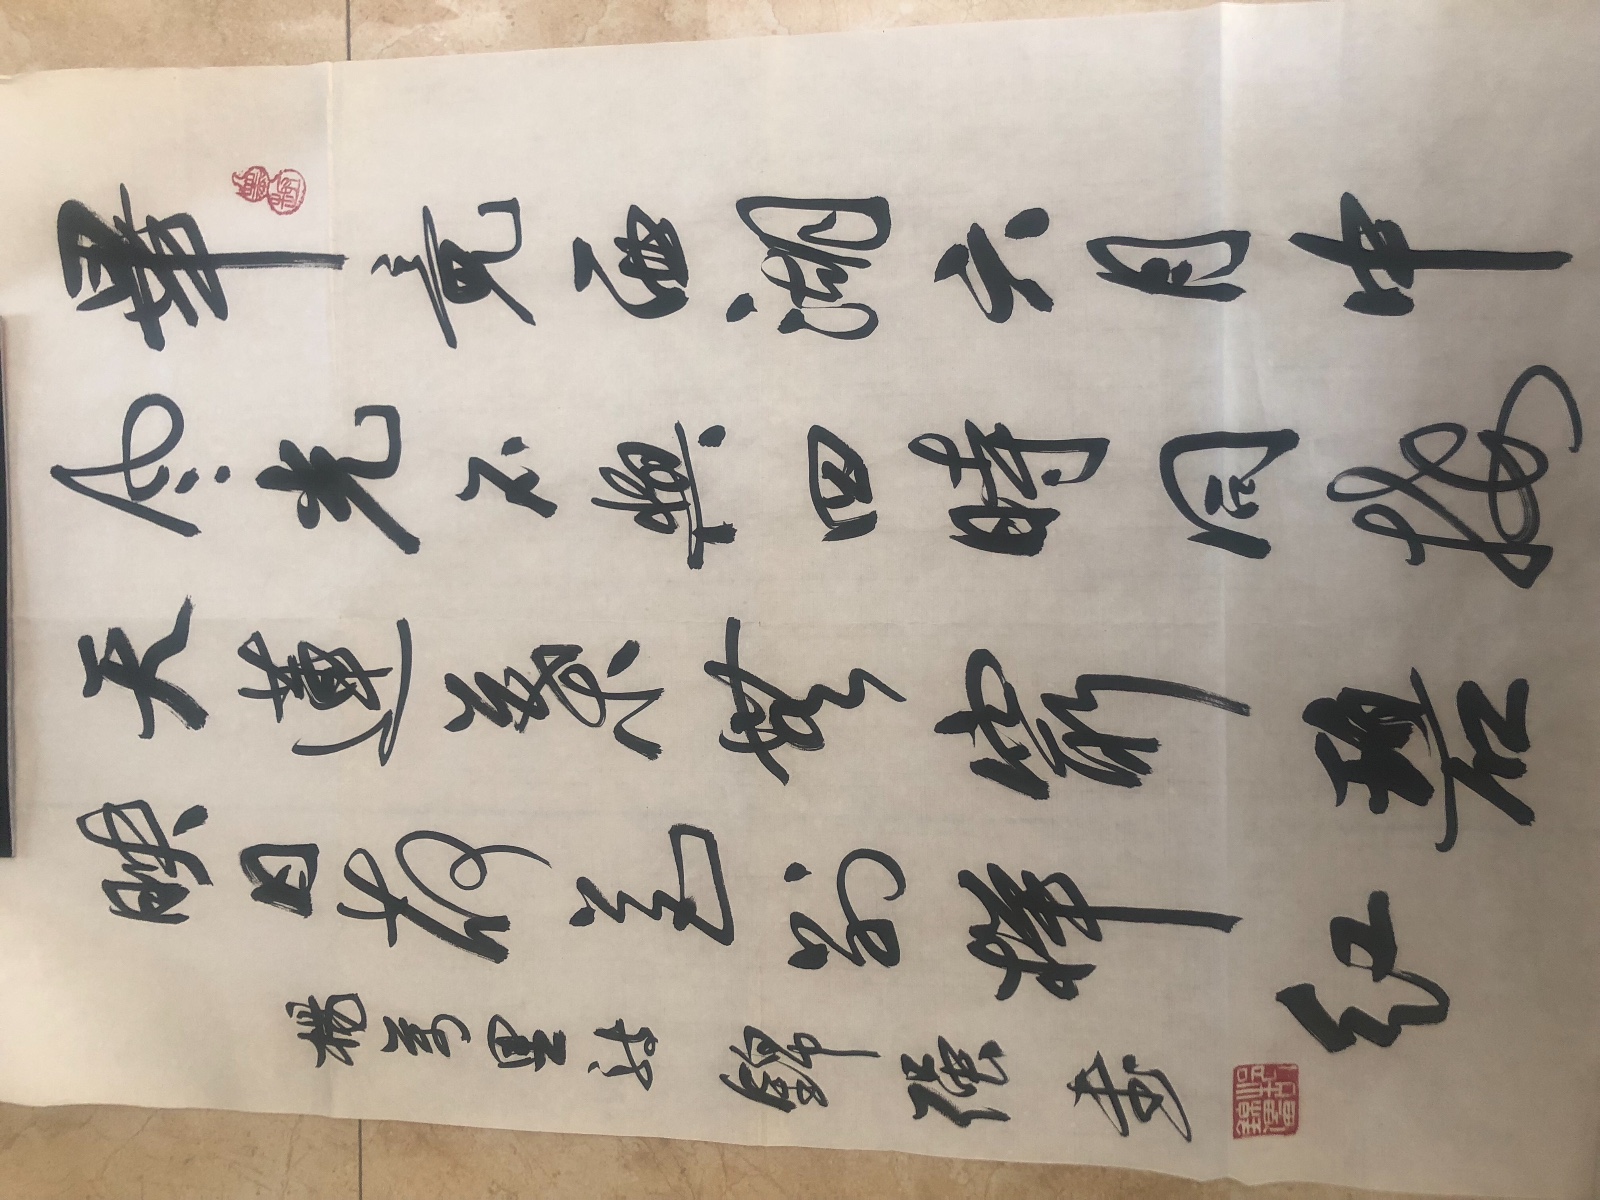 畢竟西湖六月中
风光不與四時同接
天蓮葉無窮碧
映日荷花别樣红
楊萬里詩 錦强書